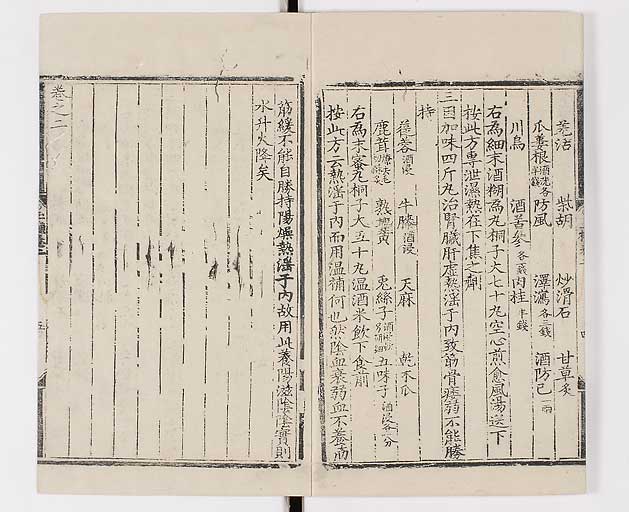 羌活 柴胡 炒滑石 甘草炙
瓜蔞根酒洗各半錢 防風 澤瀉各三錢 酒防己一兩
川烏 酒苦參各錢 肉桂半錢
右為細末酒糊為丸桐子大七十丸空心煎愈風湯送下
按此方專泄濕熱在下焦之劑
三因加味四斤丸治腎臟肝虛熱淫于內致筋骨痿弱不能勝
持
蓯蓉酒浸 牛膝酒浸 天麻 乾木瓜
鹿茸 熟地黃 兎絲子 五味子酒浸各一分
右為末蜜丸桐子大五十丸溫酒米飲下食前
按此方云熱淫于內而用溫補何也然陰血衰弱血不養筋
筋緩不能自勝持陽燥熱淫于內故用此養陽滋陰陰實則
水升火降矣
卷之二